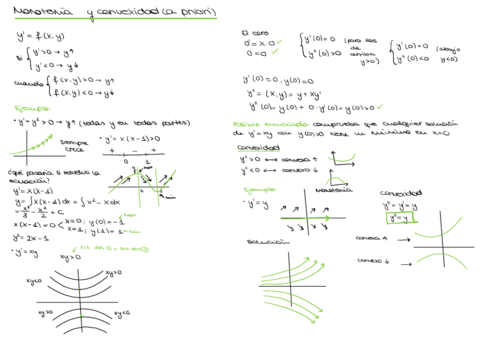 Monotonía y convexidad (a priori)
y' = f(x,y)
si { y' > 0 → y↑
y' < 0 → y↓
cuando { f(x,y) > 0 → y↑
f(x,y) < 0 → y↓
Ejemplo:
· y' = y² > 0 → y↑ (todas y en todas partes)
siempre crece
· y' = x(x-1) > 0
+ - +
0 1
¿qué pasaría si resuelvo la ecuación?
y' = x(x-1)
y = ∫x(x-1)dx = ∫x²-xdx
= x³/3 - x²/2 + C
x(x-1) = 0 < x=0; y''(0) = -1 → max
x=1; y''(1) = 1 → min
y'' = 2x-1
· y' = xy
xy > 0
xy<0 xy>0
xy>0 xy<0
El cero
0' = x·0 ✓
0 = 0 ✓
{ y'(0) = 0 (para sol de arriba y>0)
y''(0) > 0
{ y'(0) = 0 (abajo y<0)
y''(0) < 0
y'(0) = 0 · y(0) = 0
y'' = (x,y)' = y + xy'
y''(0) = y(0) + 0 · y'(0) = y(0) > 0 ✓
Posible enunciado: comprueba que cualquier solución de y' = xy con y(0)>0 tiene un mínimo en x=0
Convexidad
y'' > 0 ↔ convexa ↑
y'' < 0 ↔ convexa ↓
Ejemplo
· y' = y
Monotonía
Convexidad
y'' = y' = y
y'' = y
convexa ↑
convexa ↓
solución